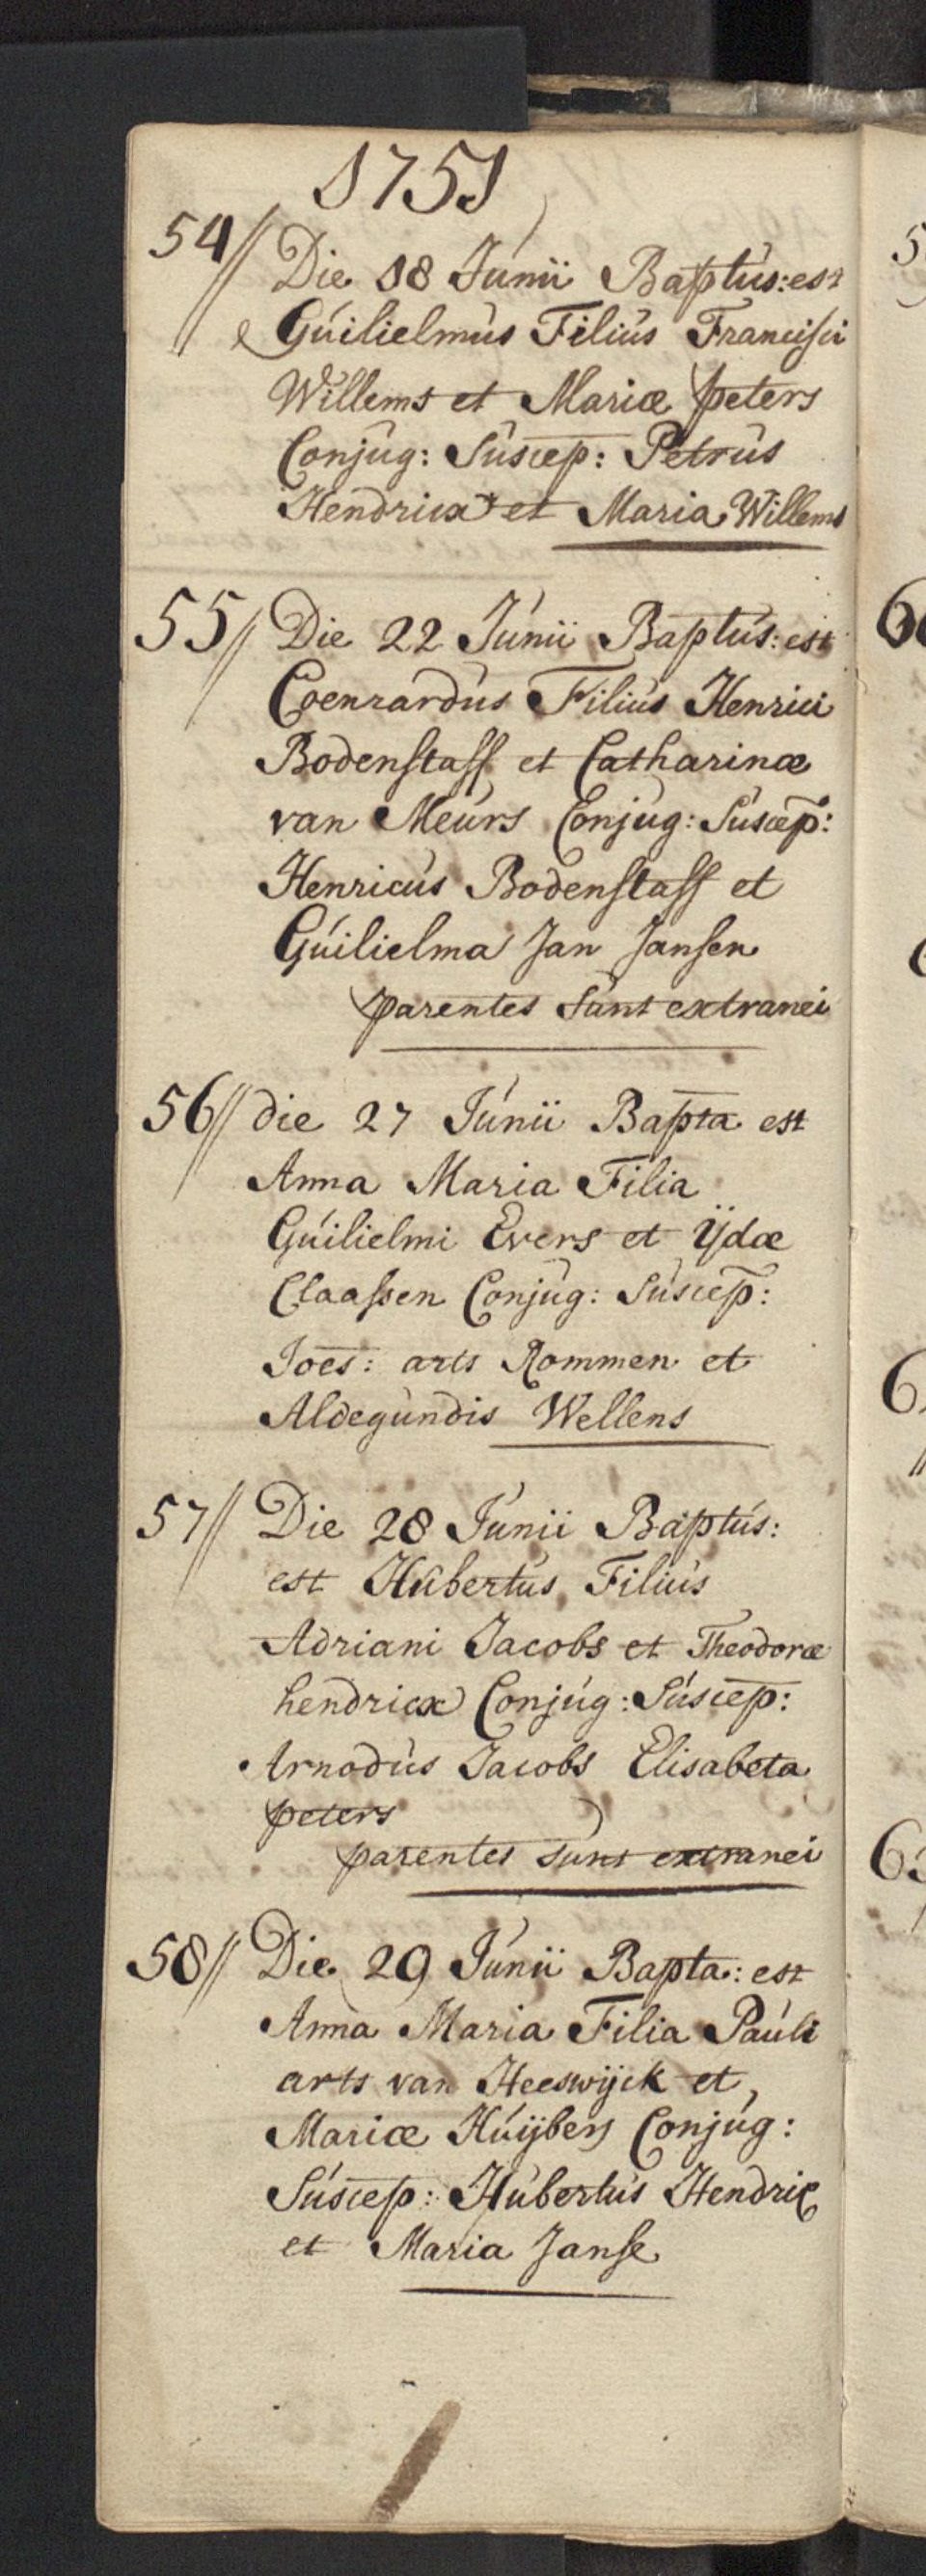 1751
54// Die 18 Junii Baptus: est
Guilielmus Filius Francisci
Willems et Mariæ peters
Conjug: Suscep: Petrus
Hendricx et Maria Willems
55// Die 22 Junii Baptus: est
Coenrardus Filius Henrici
Bodenstaff et Catharinæ
van Meurs Conjug: Suscep:
Henricus Bodenstaff et
Guilielma Jan Jansen
parentes sunt extranei
56// die 27 Junii Bapta est
Anna Maria Filia
Guilielmi Evers et Ÿdæ
Claassen Conjug: Suscep:
Joes: arts Rommen et
Aldegundis Wellens
57// Die 28 Junii Baptus:
est Hubertus Filius
Adriani Jacobs et Theodoræ
hendricx Conjug: Suscep:
Arnodus Jacobs Elisabeta
peters
parentes sunt extranei
58// Die 29 Junii Bapta: est
Anna Maria Filia Pauli
arts van Heeswijck et
Mariæ Huijbers Conjug:
Suscep: Hubertus Hendric
et Maria Janse